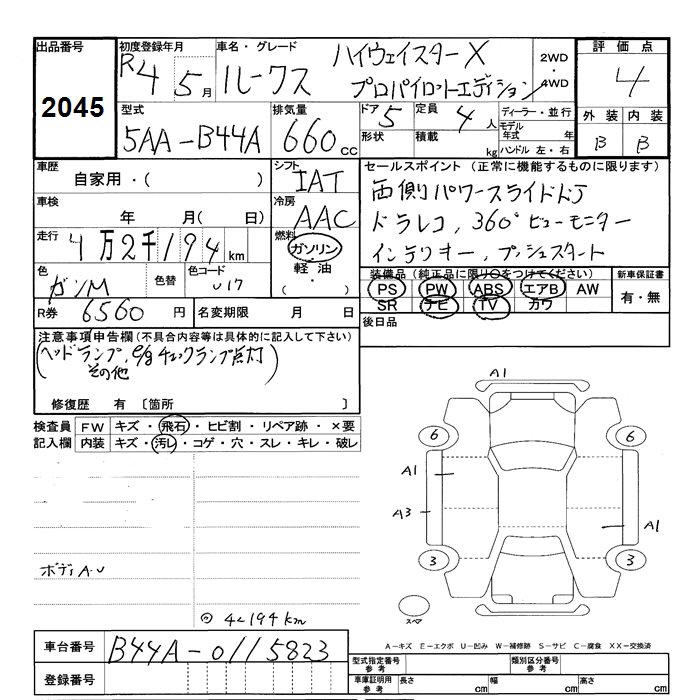 出品番号
2045
初度登録年月
R4 5月
車名・グレード
ルークス
ハイウェイスターX
プロパイロットエディション
2WD
・
4WD
評価点
4
外装 内装
B B
型式
5AA-B44A
排気量
660cc
ドア 5
形状
定員 4人
積載 kg
ディーラー・並行
モデル年式 年
ハンドル 左・右
車歴
自家用・( )
車検
年 月( 日)
走行
4万2千194km
色
ガンM
色替
色コード
R券
6560円
名変期限 月 日
シフト
IAT
冷房
AAC
燃料
ガソリン
軽油
・( )
セールスポイント(正常に機能するものに限ります)
両側パワースライドドア
ドラレコ、360°ビューモニター
インテリキー、プッシュスタート
装備品(純正品に限り〇をつけてください)
PS PW ABS エアB AW
SR ナビ TV カワ
新車保証書
有・無
後日品
注意事項申告欄(不具合内容等は具体的に記入して下さい)
(ヘッドランプ、e/gチェックランプ点灯)
その他
修復歴 有〔箇所 〕
検査員 FW キズ・飛石・ヒビ割・リペア跡・×要
記入欄 内装 キズ・汚レ・コゲ・穴・スレ・キレ・破レ
ボディA・U
◎ 42194km
A1
6 6
A1
A3
A1
3 3
スペア
A-キズ E-エクボ U-凹み W-補修跡 S-サビ C-腐食 XX-交換済
車台番号
B44A-0115823
登録番号
型式指定番号
参考
類別区分番号
参考
車庫証明用
参考
長さ cm 幅 cm 高さ cm